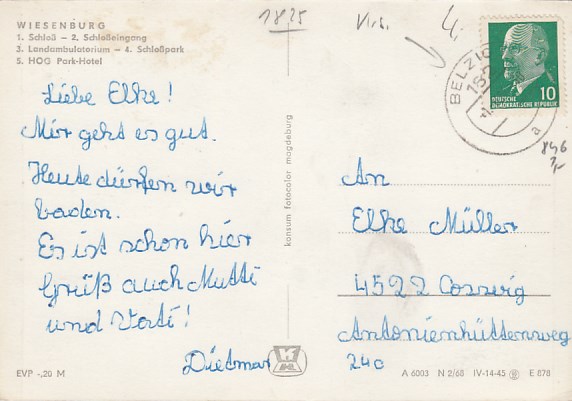 WIESENBURG
1. Schloß – 2. Schloßeingang
3. Landambulatorium – 4. Schloßpark
5. HOG Park-Hotel
1825
BELZIG
182
a
DEUTSCHE
DEMOKRATISCHE REPUBLIK
10
846
Liebe Elke!
Mir geht es gut.
Heute dürfen wir
baden.
Es ist schon hier
Grüß auch Mutti
und Vati!
Dietmar
konsum fotocolor magdeburg
An
Elke Müller
4522 Coswig
Antonienhüttenweg
24c
EVP -,20 M
A 6003 N 2/68 IV-14-45 E 878